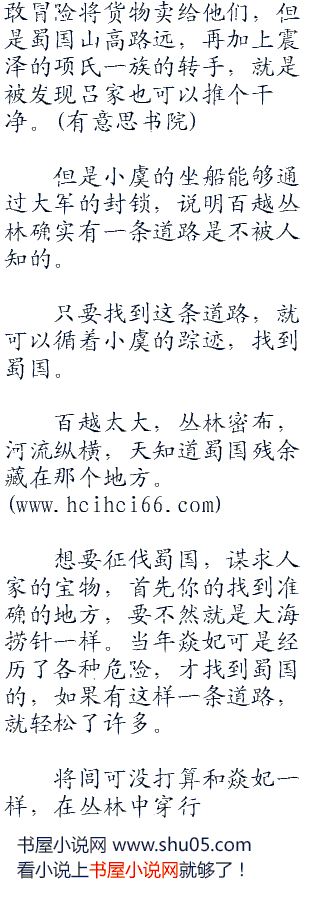 敢冒险将货物卖给他们，但
是蜀国山高路远，再加上震
泽的项氏一族的转手，就是
被发现吕家也可以推个干
净。(有意思书院)
但是小虞的坐船能够通
过大军的封锁，说明百越丛
林确实有一条道路是不被人
知的。
只要找到这条道路，就
可以循着小虞的踪迹，找到
蜀国。
百越太大，丛林密布，
河流纵横，天知道蜀国残余
藏在那个地方。
(www.hcihci66.com)
想要征伐蜀国，谋求人
家的宝物，首先你的找到准
确的地方，要不然就是大海
捞针一样。当年焱妃可是经
历了各种危险，才找到蜀国
的，如果有这样一条道路，
就轻松了许多。
将闾可没打算和焱妃一
样，在丛林中穿行
书屋小说网 www.shu05.com
看小说上书屋小说网就够了！